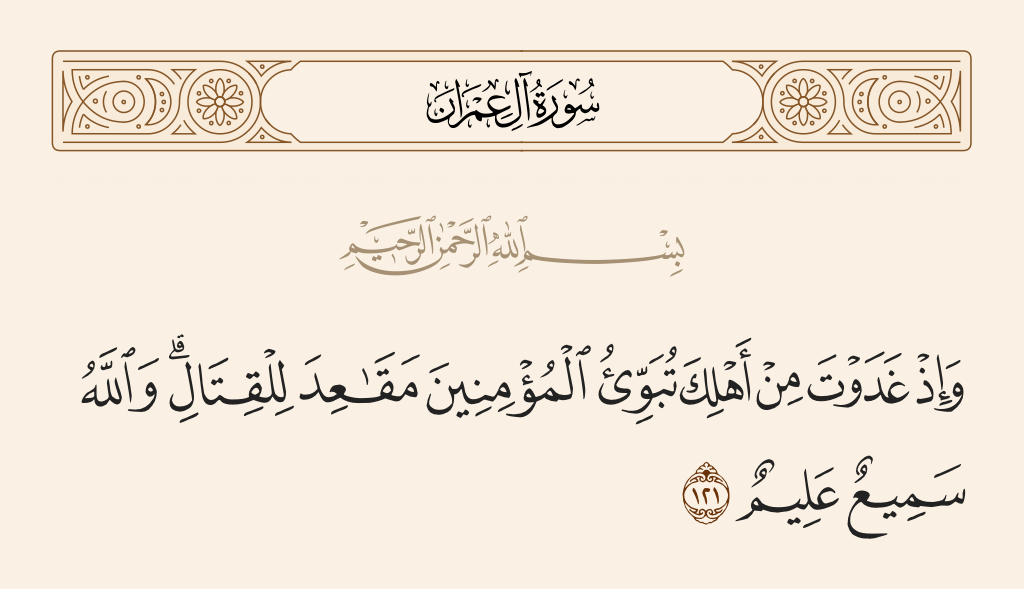 سُورَةُ آلِ عِمْرَانَ
بِسْمِ ٱللَّهِ ٱلرَّحْمَٰنِ ٱلرَّحِيمِ
وَإِذْ غَدَوْتَ مِنْ أَهْلِكَ تُبَوِّئُ ٱلْمُؤْمِنِينَ مَقَٰعِدَ لِلْقِتَالِ ۗ وَٱللَّهُ
سَمِيعٌ عَلِيمٌ ١٢١